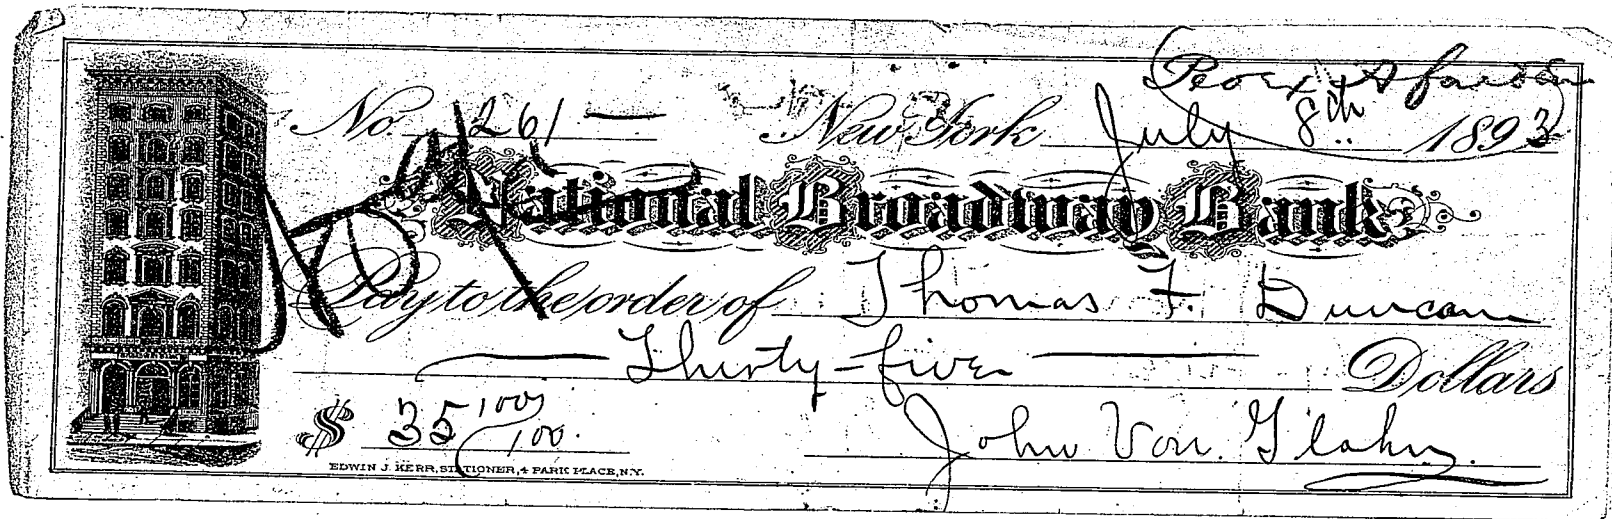 No. 261
New York July 8th 1893
National Broadway Bank
Pay to the order of Thomas F. Duncan
Thirty-five Dollars
$ 35 100/100.
John Von. Glahn.
EDWIN J. KERR, STATIONER, 4 PARK PLACE, N.Y.